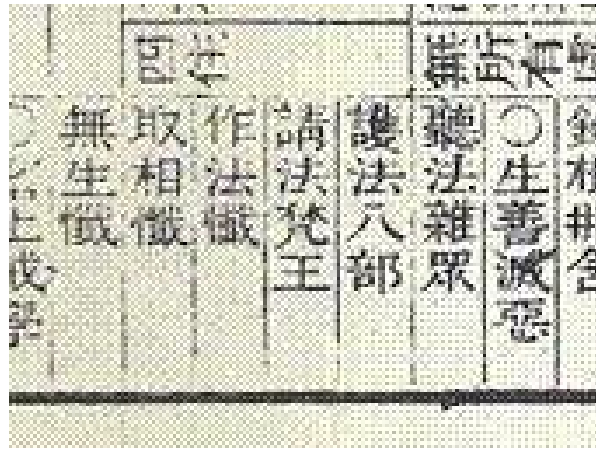 無所有
○生善滅惡
聽法雜眾
護法八部
請法梵王
四住
作法懺
取相懺
無生懺